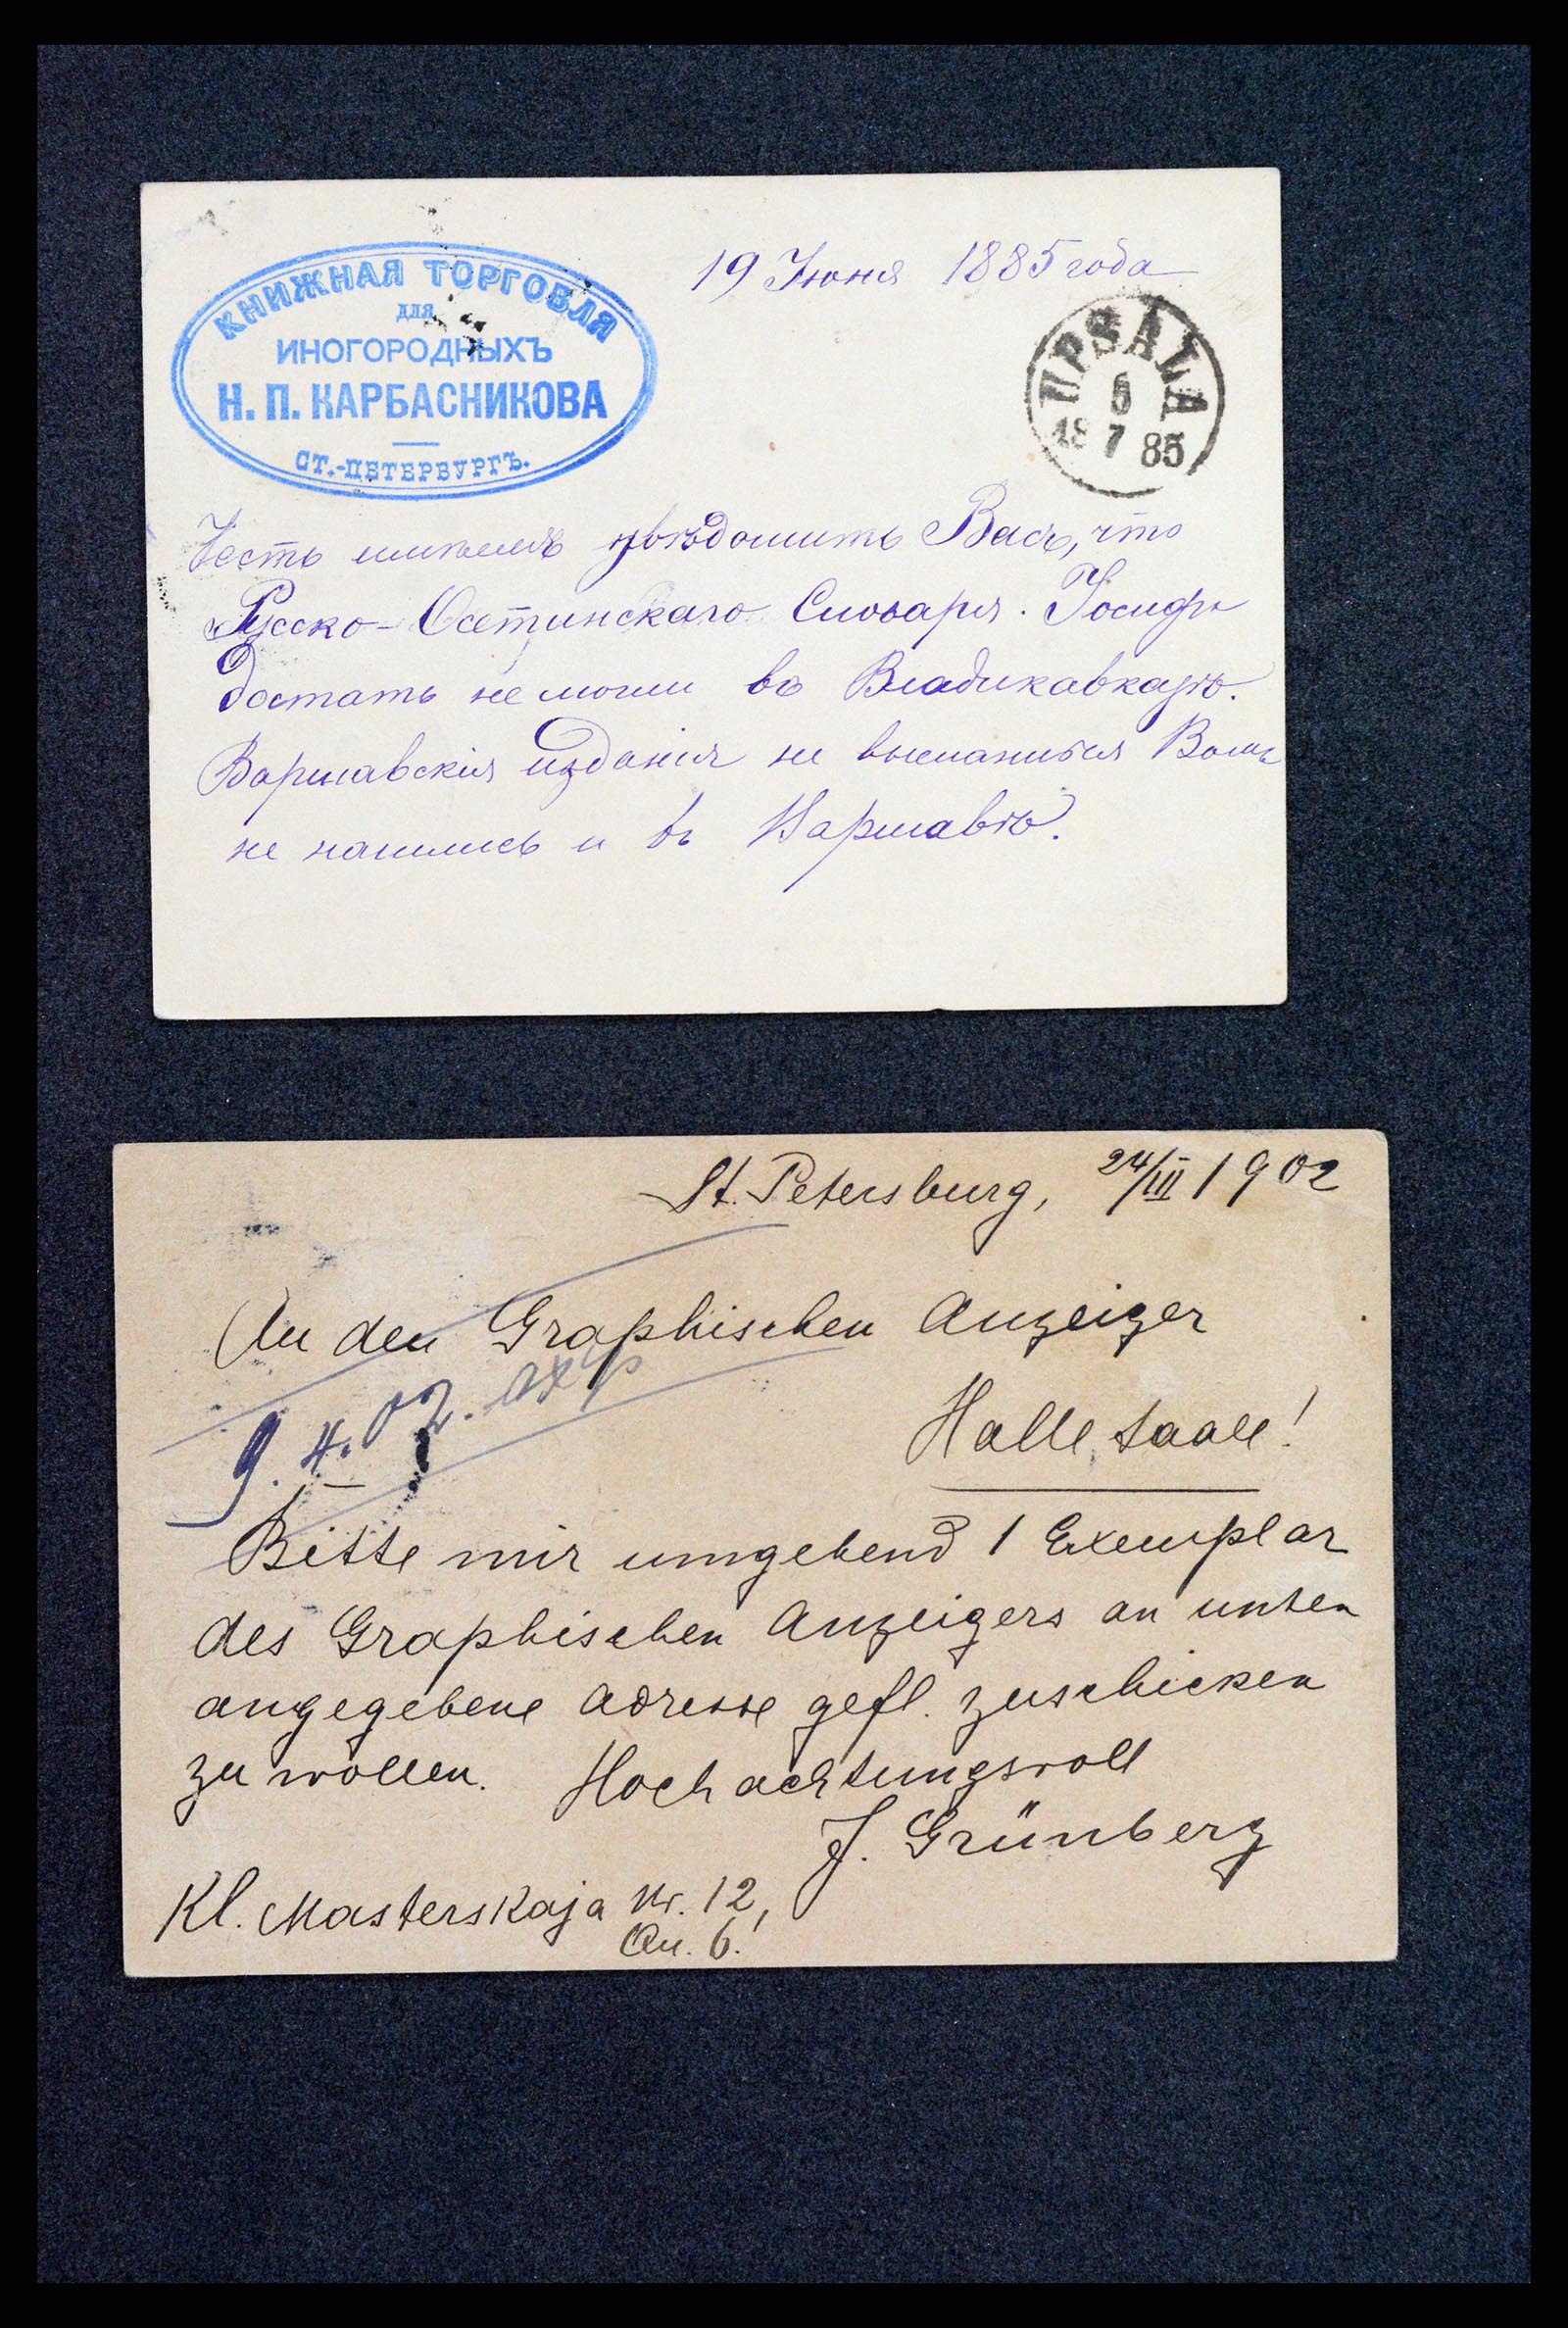 КНИЖНАЯ ТОРГОВЛЯ
ДЛЯ
ИНОГОРОДНЫХЪ
Н. П. КАРБАСНИКОВА
СТ.-ПЕТЕРБУРГЪ.
19 Іюня 1885 года
UPSALA
6
18 7 85
Честь имѣемъ увѣдомить Васъ, что
Русско-Осетинскаго Словаря. Іосифа
достать не могли въ Владикавказѣ.
Варшавскія изданія не Вамъ
не нашлись и въ Варшавѣ.
St. Petersburg, 24/III 1902
An den Graphischen Anzeiger
Halle, Saale!
9. 4. 02.
Bitte mir umgehend 1 Exemplar
des Graphischen Anzeigers an unten
angegebene Adresse gefl. zuschicken
zu wollen. Hochachtungsvoll
J. Grünberg
Kl. Masterskaja Nr. 12,
Qu. 6.